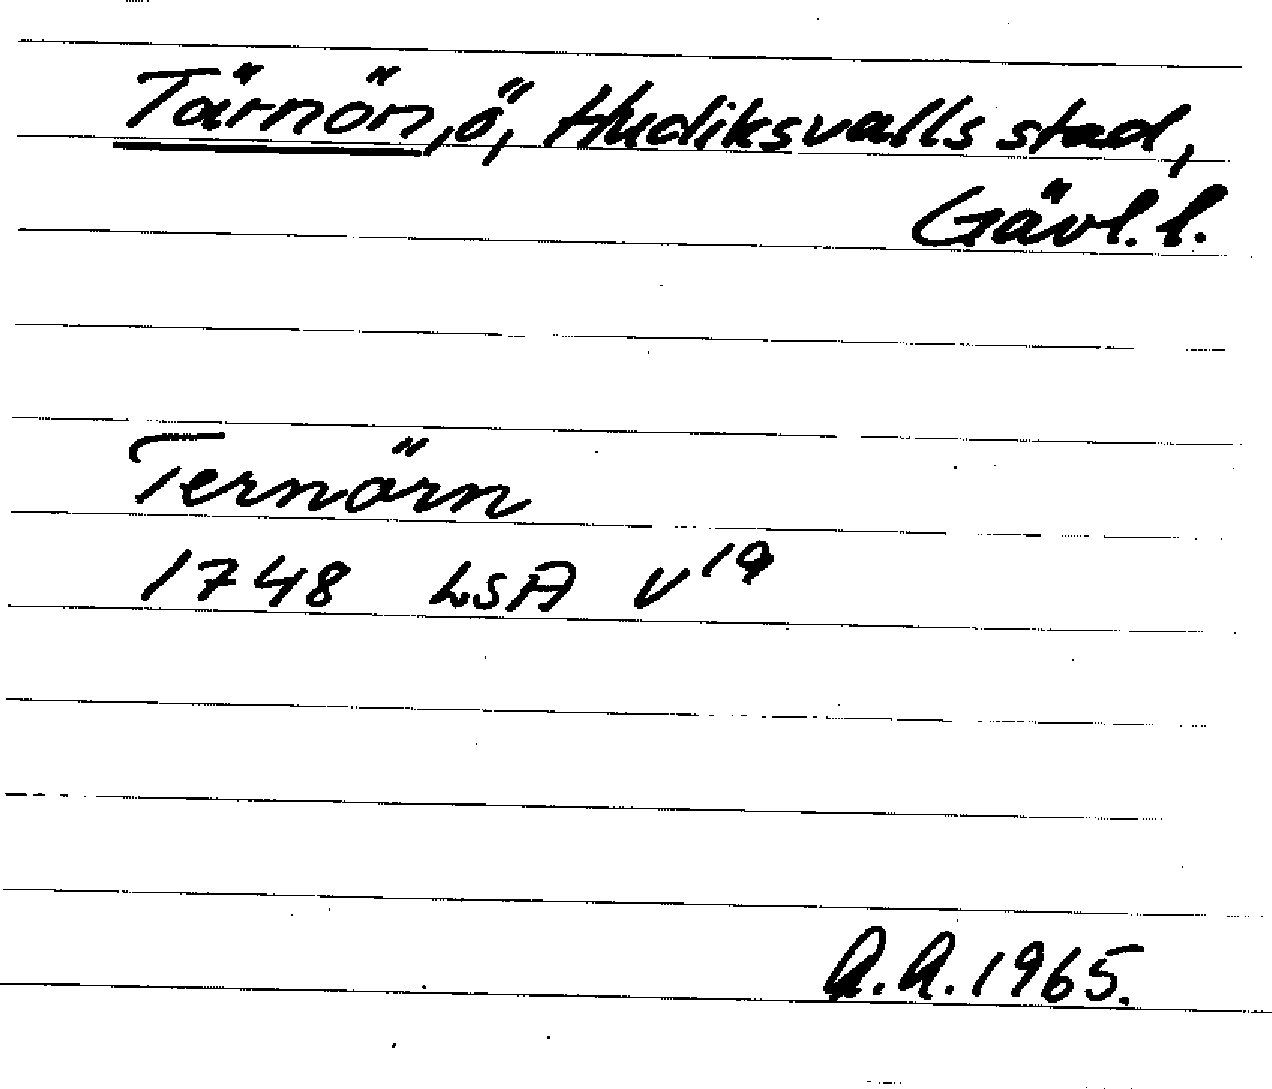 Tärnön, ö, Hudiksvalls stad,
Gävl. l.
Ternörn
1748 LSA V¹⁹
A.A. 1965.